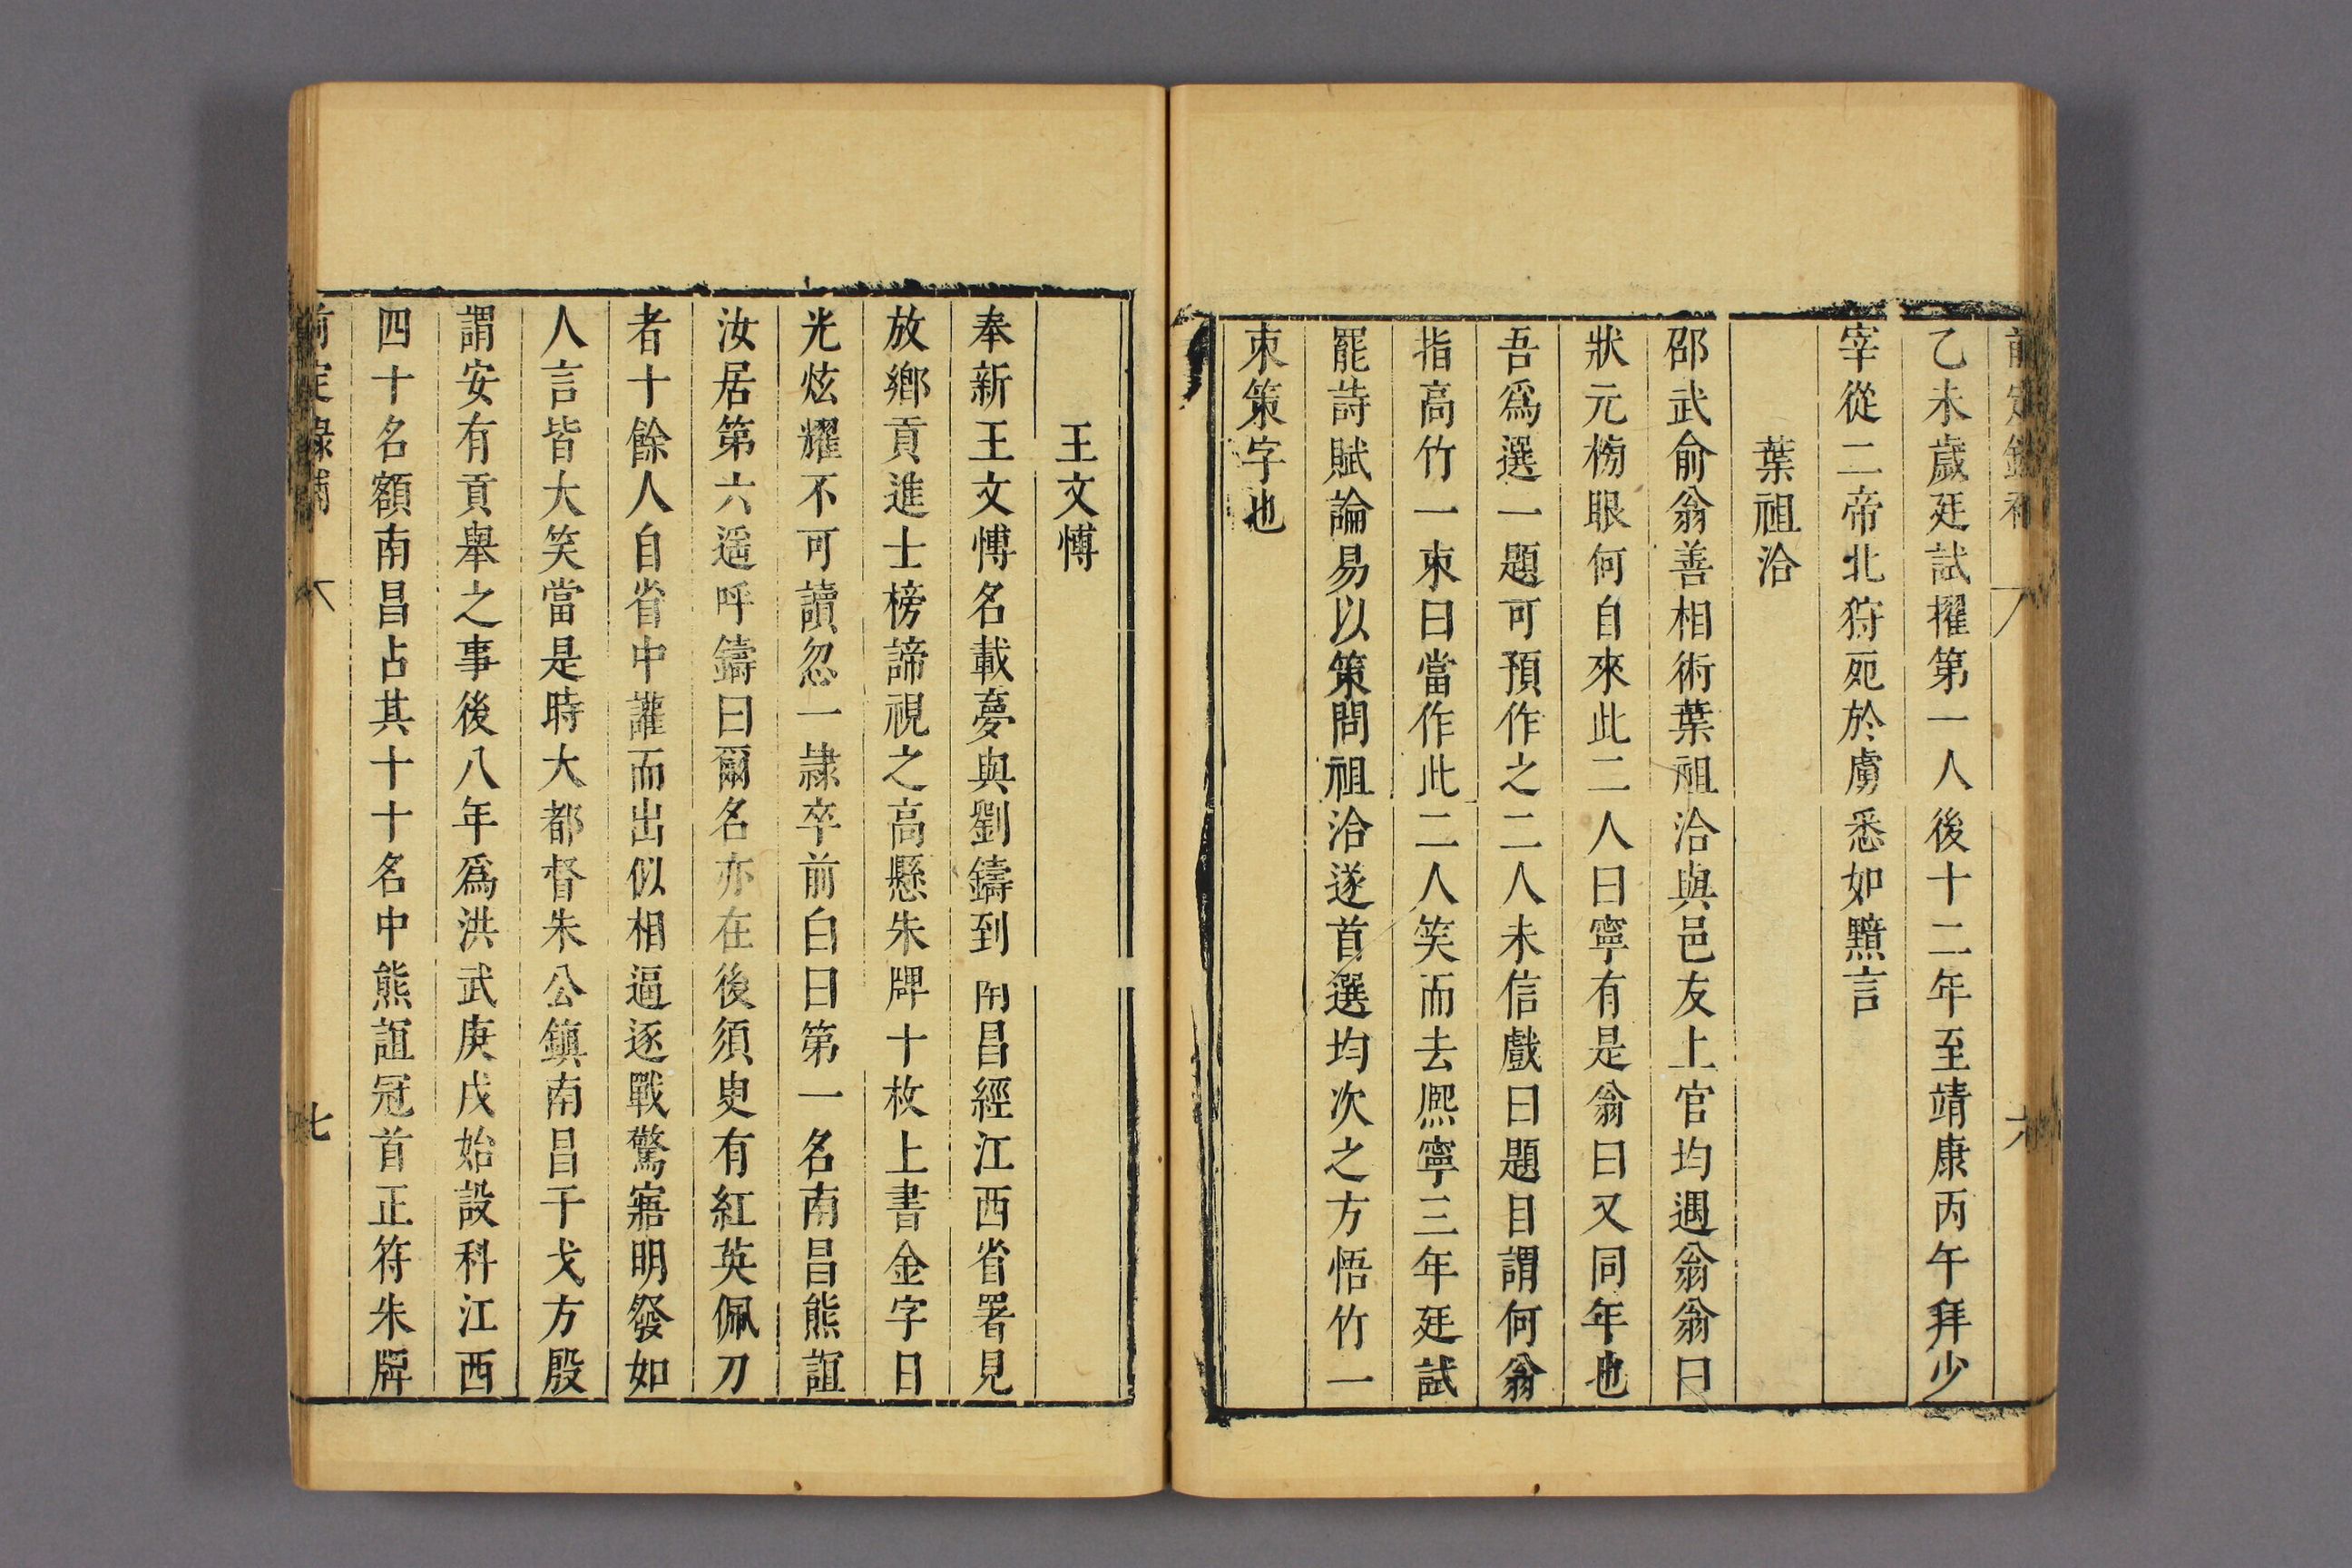 乙未歲廷試擢第一人後十二年至靖康丙午拜少
宰從二帝北狩死於虜悉如黯言
葉祖洽
邵武俞翁善相術葉祖洽與邑友上官均遇翁翁曰
狀元榜眼何自來此二人曰寧有是翁曰又同年也
吾爲選一題可預作之二人未信戲曰題目謂何翁
指高竹一束曰當作此二人笑而去熈寧三年廷試
罷詩賦論易以策問祖洽遂首選均次之方悟竹一
束策字也
王文慱
奉新王文慱名載夢與劉鑄到南昌經江西省署見
放鄉貢進士榜諦視之高懸朱牌十枚上書金字日
光炫耀不可讀忽一隷卒前白曰第一名南昌熊誼
汝居第六遥呼鑄曰爾名亦在後須臾有紅英佩刀
者十餘人自省中讙而出似相逼逐戰驚寤明發如
人言皆大笑當是時大都督朱公鎮南昌干戈方殷
謂安有貢舉之事後八年爲洪武庚戌始設科江西
四十名額南昌占其十十名中熊誼冠首正符朱牌
前定錄補
七